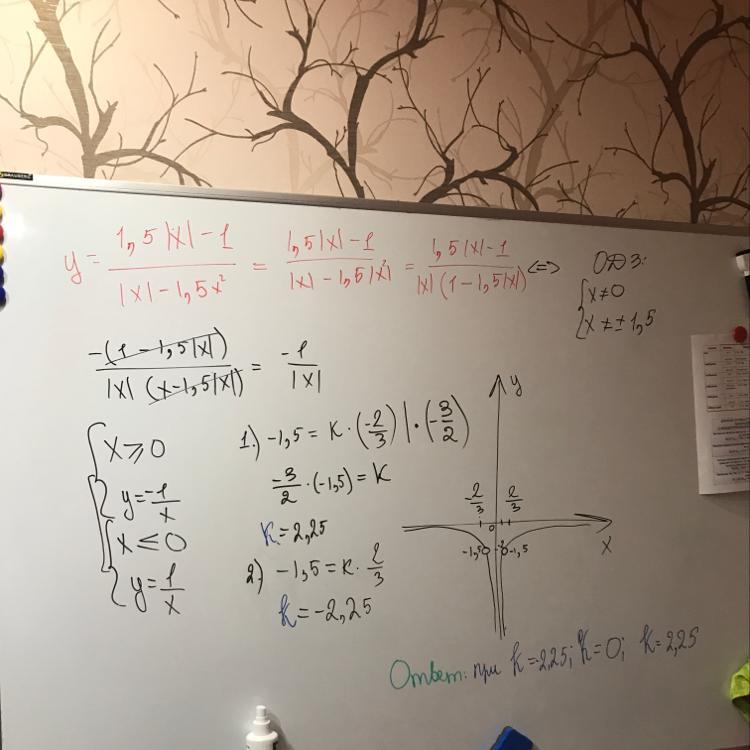 y = 1,5|x| - 1 / |x| - 1,5x² = 1,5|x| - 1 / |x| - 1,5|x²| = 1,5|x| - 1 / |x|(1 - 1,5|x|) <=> ОДЗ:
{ x ≠ 0
x ≠ ± 1,5
-(1 - 1,5|x|) / |x| (x - 1,5|x|) = -1 / |x|
{ x ⩾ 0
y = -1/x
{ x ≤ 0
y = 1/x
1.) -1,5 = k · (-2/3) | · (-3/2)
-3/2 · (-1,5) = k
k = 2,25
2) -1,5 = k · 2/3
k = -2,25
y
-2/3 2/3
0
x
-1,5 -1,5
Ответ: при k = -2,25; k = 0; k = 2,25